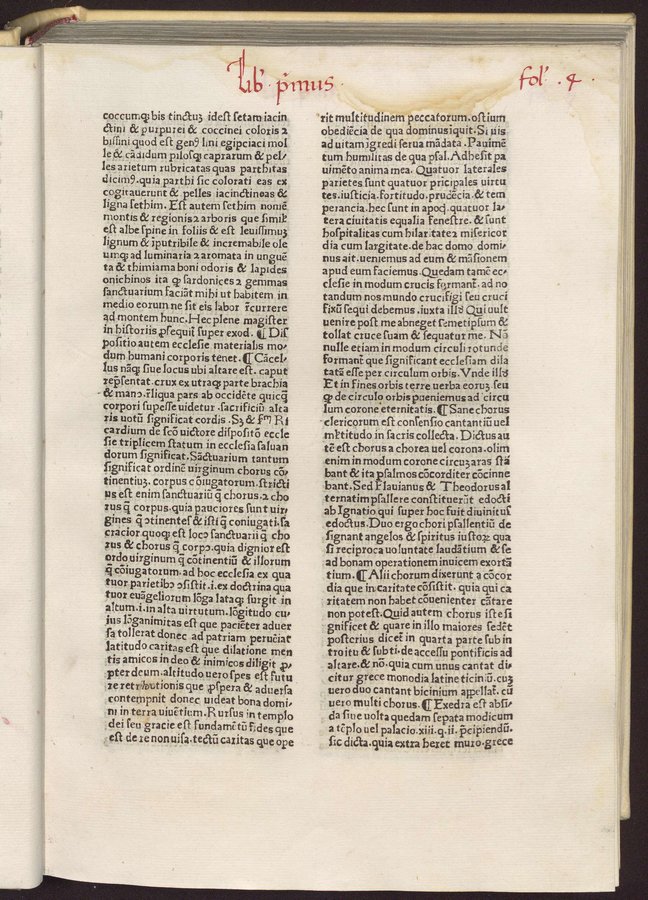 Lib' p̄mus.
fol'. 4.
coccumq; bis tinctuȝ idest setam iacin
ctini & purpurei & coccinei coloris ⁊
bissini quod est gen⁹ lini egipciaci mol
le & cādidum pilosq; caprarum & pel/
les arietum rubricatas quas parthitas
dicim⁹. quia parthi sic colorati eas ex
cogitauerunt & pelles iacinctineas &
ligna sethim. Est autem sethim nomē
montis & regionis ⁊ arboris que simil'
est albe spine in foliis & est leuissimuȝ
lignum & iputribile & incremabile ole
umq; ad luminaria ⁊ aromata in unguē
ta & thimiama boni odoris & lapides
onichinos ita ꝙ sardonices ⁊ gemmas
sanctuarium faciāt mihi ut habitem in
medio eorum ne sit eis labor r̄currere
ad montem hunc. Hec plene magister
in historiis ꝓsequit' super exod. ¶ Dis
positio autem ecclesie materialis mo/
dum humani corporis tenet. ¶ Cācel/
lus nāq; siue locus ubi altare est. caput
rep̄sentat. crux ex utraq; parte brachia
& man⁹. r̄liqua pars ab occidēte quicq̄
corpori supesse uidetur. sacrificiū alta
ris uotū significat cordis. Sȝ & s̄m Ri
cardum de sc̄o uictore dispositō eccle
sie triplicem statum in ecclesia saluan
dorum significat. Sāctuarium tantum
significat ordinē uirginum chorus cō/
tinentiuȝ. corpus cōiugatorum. stricti
us est enim sanctuariū q̄ chorus. ⁊ cho
rus q̄ corpus. quia pauciores sunt uir/
gines q̄ ꝯtinentes & isti q̄ coniugati. sa
cracior quoq; est loc⁹ sanctuarii q̄ cho
rus & chorus q̄ corp⁹. quia dignior est
ordo uirginum q̄ cōtinentiū & illorum
q̄ cōiugatorum. ad hoc ecclesia ex qua
tuor parietib⁹ ꝯsistit. i. ex doctrina qua
tuor euāgeliorum lōga lataq; surgit in
altum. i. in alta uirtutum. lōgitudo cu/
ius lōganimitas est que paciēter aduer
sa tollerat donec ad patriam peruēiat
latitudo caritas est que dilatione men
tis amicos in deo & inimicos diligit ꝓ/
pter deum. altitudo uero spes est futu
re retributionis que ꝓspera & aduersa
contempnit donec uideat bona domi/
ni in terra uiuētium. Rursus in templo
dei seu gracie est fundamētū fides que
est de re non uisa. tectū caritas que ope
rit multitudinem peccatorum. ostium
obediēcia de qua dominus iquit. Si uis
ad uitam īgredi serua mādata. Pauimē
tum humilitas de qua psal. Adhesit pa
uimēto anima mea. Quatuor laterales
parietes sunt quatuor pricipales uirtu
tes. iusticia. fortitudo. prudēcia. & tem
perancia. hec sunt in apoc̄. quatuor la/
tera ciuitatis equalia fenestre. & sunt
hospitalitas cum hilaritate ⁊ misericor
dia cum largitate. de hac domo domi/
nus ait. ueniemus ad eum & māsionem
apud eum faciemus. Quedam tamē ec/
clesie in modum crucis formant'. ad no
tandum nos mundo crucifigi seu cruci
fixū sequi debemus. iuxta illd' Qui uult
uenire post me abneget semetipsum &
tollat cruce suam & sequatur me. Nō
nulle etiam in modum circuli rotunde
formant' que significant ecclesiam dila
tatā esse per circulum orbis. Vnde illd'
Et in fines orbis terre uerba eoruȝ seu
ꝙ de circulo orbis ꝑueniemus ad circu
lum corone eternitatis. ¶ Sane chorus
clericorum est consensio cantantiū uel
mltitudo in sacris collecta. Dictus au
tē est chorus a chorea uel corona. olim
enim in modum corone circuȝ aras stā
bant & ita psalmos cōcorditer cōcinne
bant. Sed Flauianus & Theodorus al
ternatim psallere constituerūt edocti
ab Ignatio qui super hoc fuit diuinitus
edoctus. Duo ergo chori psallentiū de
signant angelos & spiritus iustoꝝ qua
si reciproca uoluntate laudātium & se
ad bonam operationem inuicem exortā
tium. ¶ Alii chorum dixerunt a cōcor
dia que in caritate cōsistit. quia qui ca
ritatem non habet cōuenienter cātare
non potest. Quid autem chorus iste si
gnificet & quare in illo maiores sedēt
posterius dicet' in quarta parte sub in
troitu & sub ti. de accessu pontificis ad
altare. & nō. quia cum unus cantat di/
citur grece monodia latine ticiniū. cuȝ
uero duo cantant bicinium appellat'. cū
uero multi chorus. ¶ Exedra est absi/
da siue uolta quedam sepata modicum
a tēplo uel palacio. xiii. q. ii. p̄cipiendū.
sic dicta. quia extra heret muro. grece